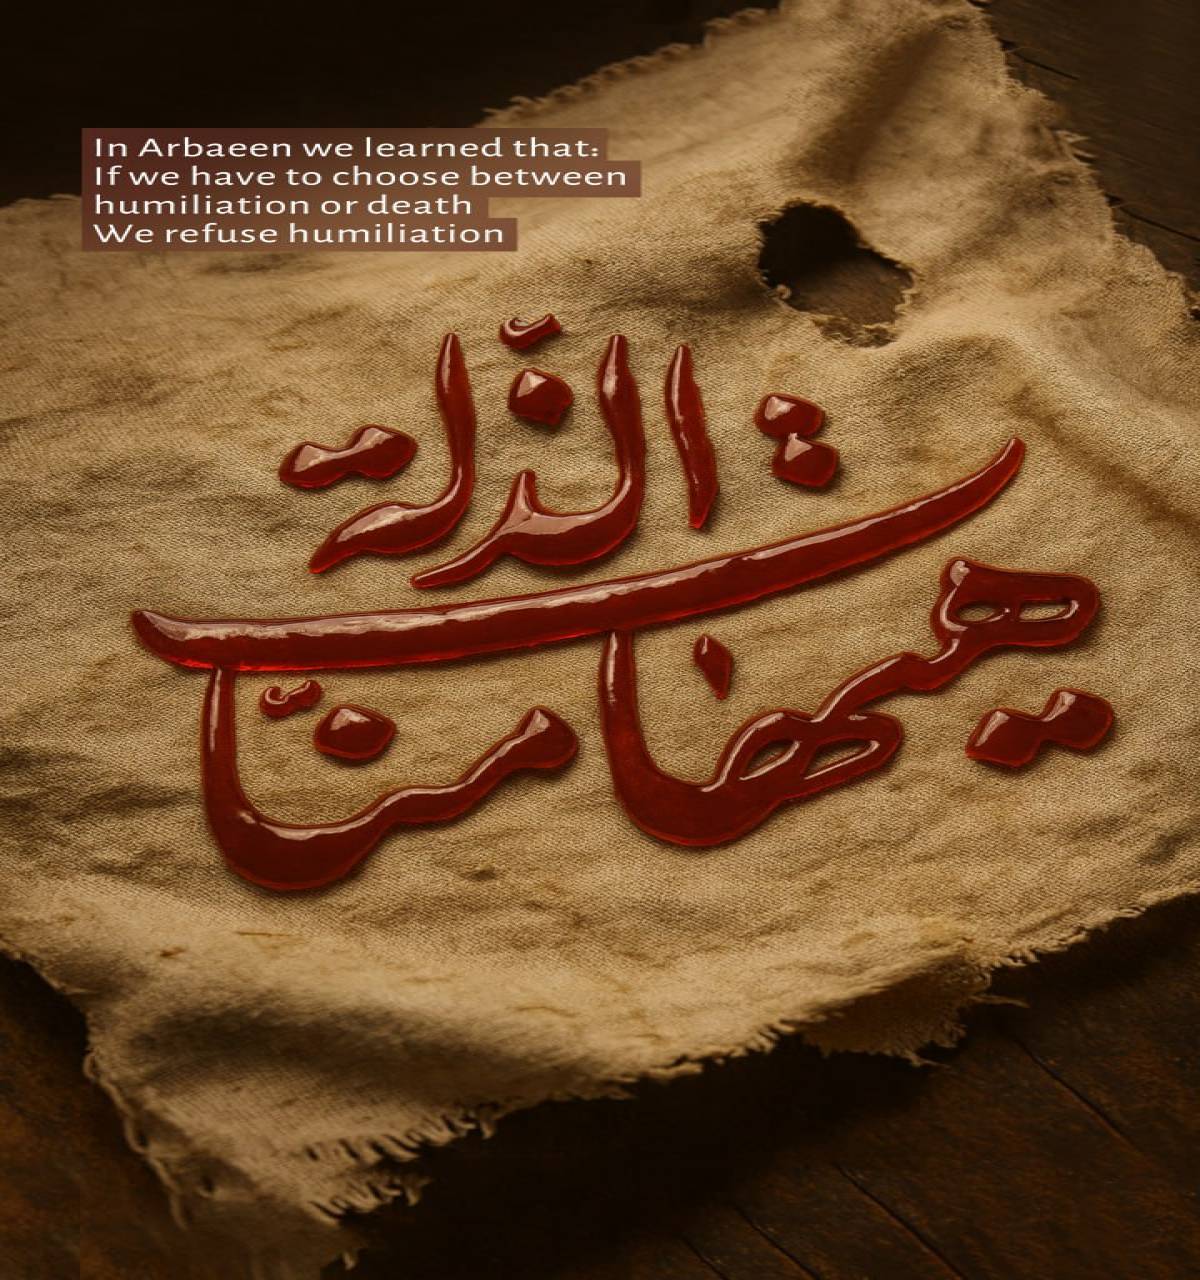 In Arbaeen we learned that:
If we have to choose between
humiliation or death
We refuse humiliation
هيهات منّا الذّلة